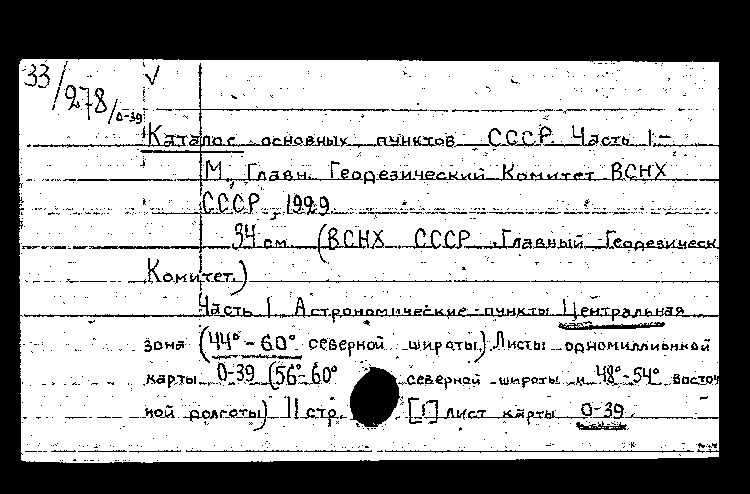 33/278/0-39 √
Каталог основных пунктов СССР. Часть 1.–
М., Главн. Геодезический Комитет ВСНХ
СССР, 1929.
34 см. (ВСНХ СССР. Главный Геодезическ
Комитет.)
Часть 1. Астрономические пункты Центральная
зона (44° - 60° северной широты.) Листы одномиллионной
карты 0-39 (56°-60° северной широты и 48°-54° восточ
ной долготы) 11 стр. [1] лист карты 0-39.